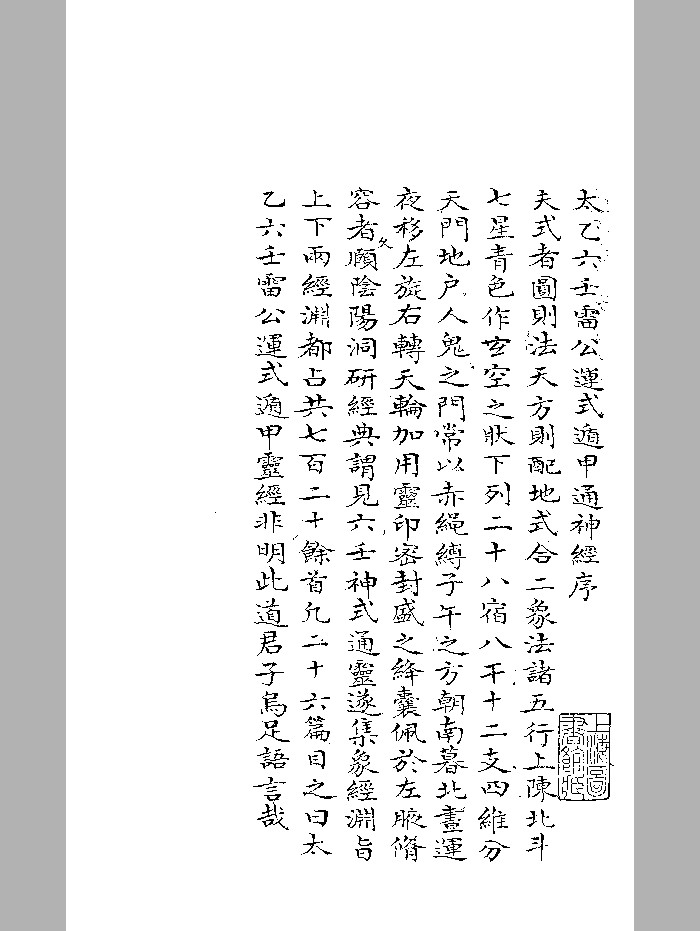 太乙六壬雷公運式遁甲通神經序
夫式者圓則法天方則配地式合二象法諸五行上陳北斗
七星青色作玄空之狀下列二十八宿八干十二支四維分
天門地户人鬼之門常以赤繩縛子午之方朝南暮北晝運
夜移左旋右轉天輪加用靈印密封盛之絳囊佩於左腋脩
容者願久陰陽洞研經典謂見六壬神式通靈遂集象經淵旨
上下兩經淵都占共七百二十餘首凡二十六篇目之曰太
乙六壬雷公運式遁甲靈經非明此道君子烏足語言哉
上海圖書館藏